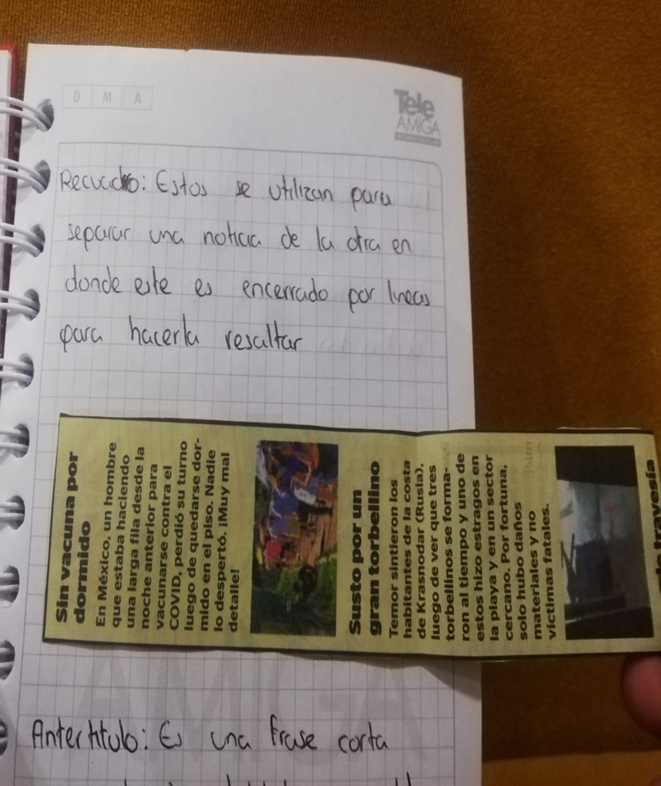 D M A
Tele
AMIGA
Recuadro: Estos se utilizan para
separar una noticia de la otra en
donde este es encerrado por lineas
para hacerla resaltar
Sin vacuna por
dormido
En México, un hombre
que estaba haciendo
una larga fila desde la
noche anterior para
vacunarse contra el
COVID, perdió su turno
luego de quedarse dor-
mido en el piso. Nadie
lo despertó. ¡Muy mal
detalle!
Susto por un
gran torbellino
Temor sintieron los
habitantes de la costa
de Krasnodar (Rusia),
luego de ver que tres
torbellinos se forma-
ron al tiempo y uno de
estos hizo estragos en
la playa y en un sector
cercano. Por fortuna,
solo hubo daños
materiales y no
víctimas fatales.
travesía
AMIGA
Antertitulo: Es una frase corta